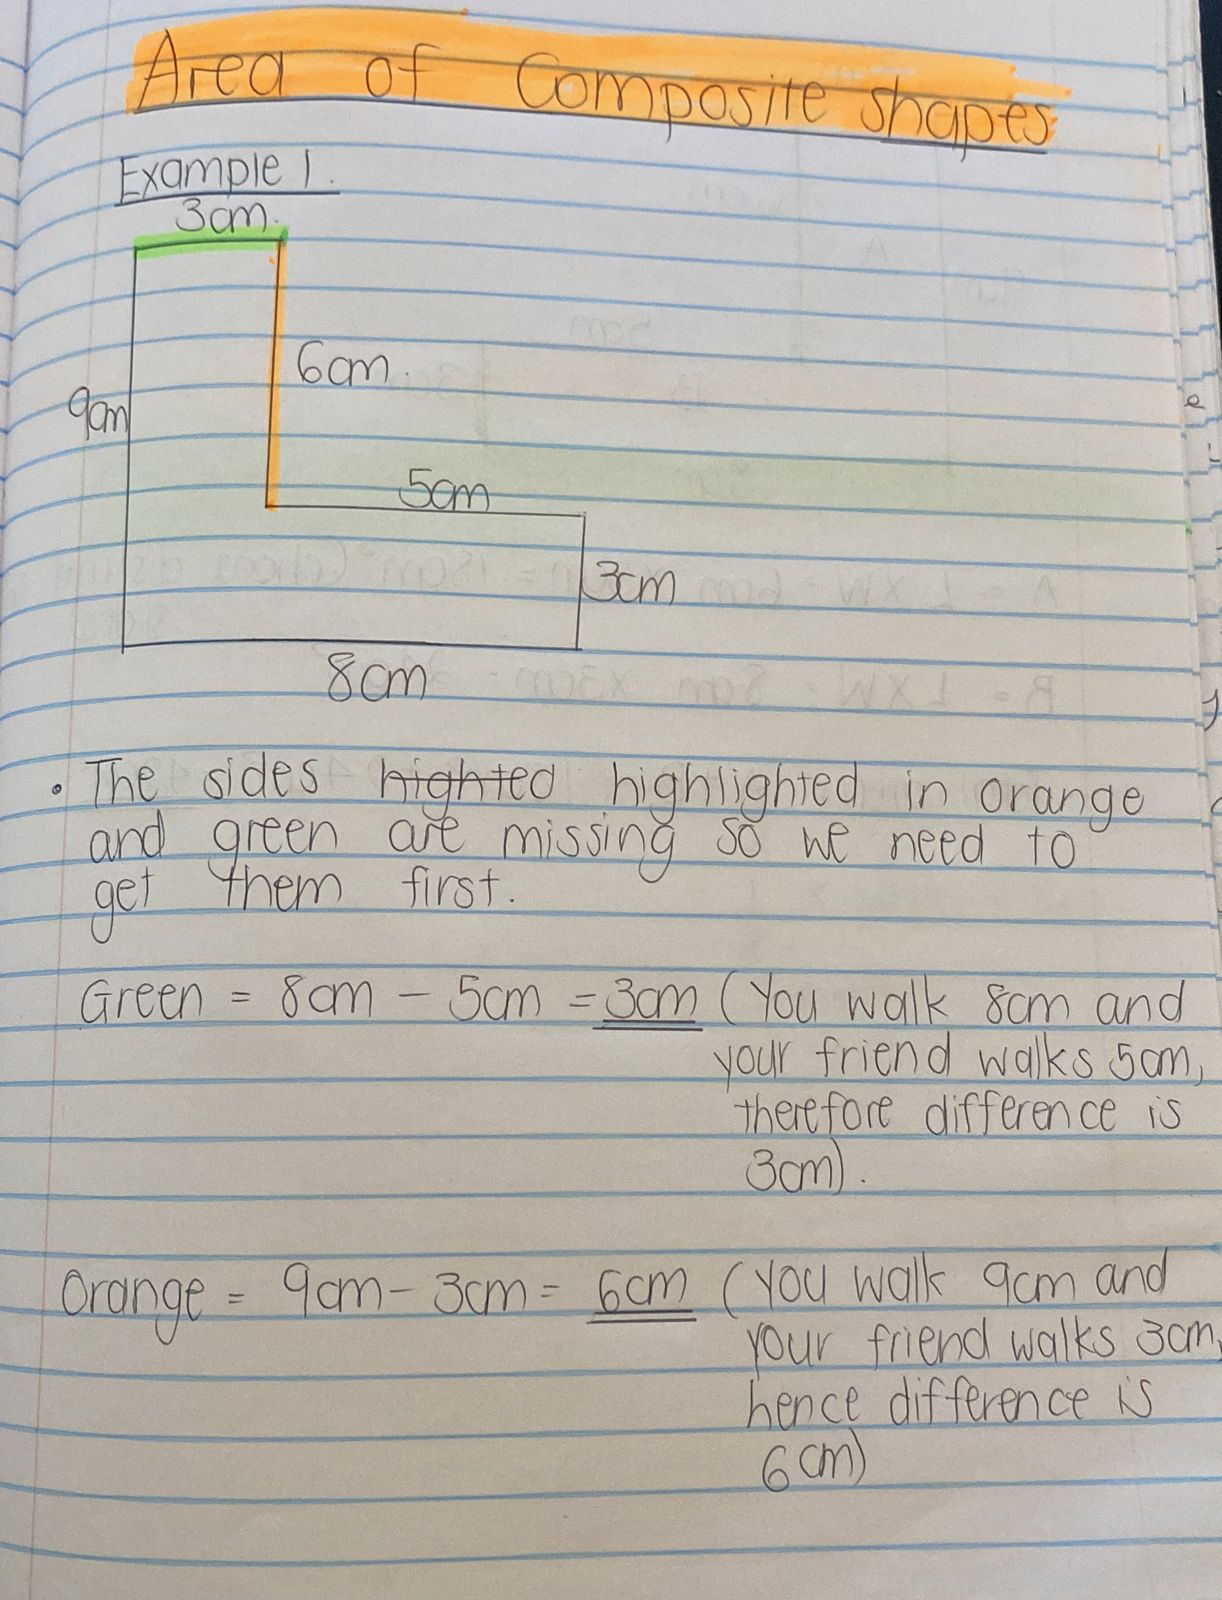 Area of Composite shapes
Example 1.
3cm.
6cm.
9cm
5cm
3cm
8cm
• The sides highted highlighted in orange
and green are missing so we need to
get them first.
Green = 8cm - 5cm = 3cm (You walk 8cm and
your friend walks 5cm,
therefore difference is
3cm).
Orange = 9cm - 3cm = 6cm (You walk 9cm and
your friend walks 3cm,
hence difference is
6cm)